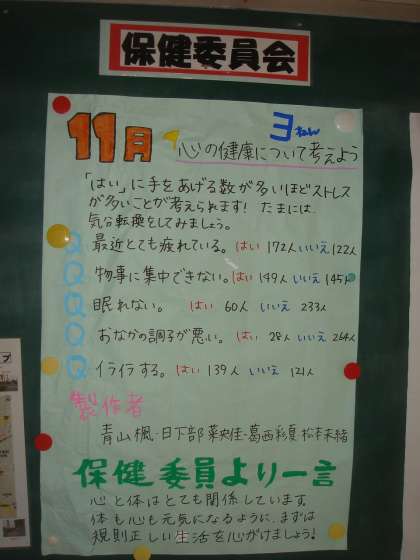 保健委員会
11月
3ねん
心の健康について考えよう
「はい」に手をあげる数が多いほどストレス
が多いことが考えられます！たまには、
気分転換をしてみましょう。
Q 最近とても疲れている。はい 172人 いいえ 122人
Q 物事に集中できない。はい 149人 いいえ 145人
Q 眠れない。 はい 60人 いいえ 233人
Q おなかの調子が悪い。 はい 28人 いいえ 264人
Q イライラする。はい 139人 いいえ 121人
製作者
青山楓・日下部菜央佳・葛西彩夏 松本未緒
保健委員より一言
心と体はとても関係しています。
体も心も元気になるように、まずは
規則正しい生活を心がけましょう！